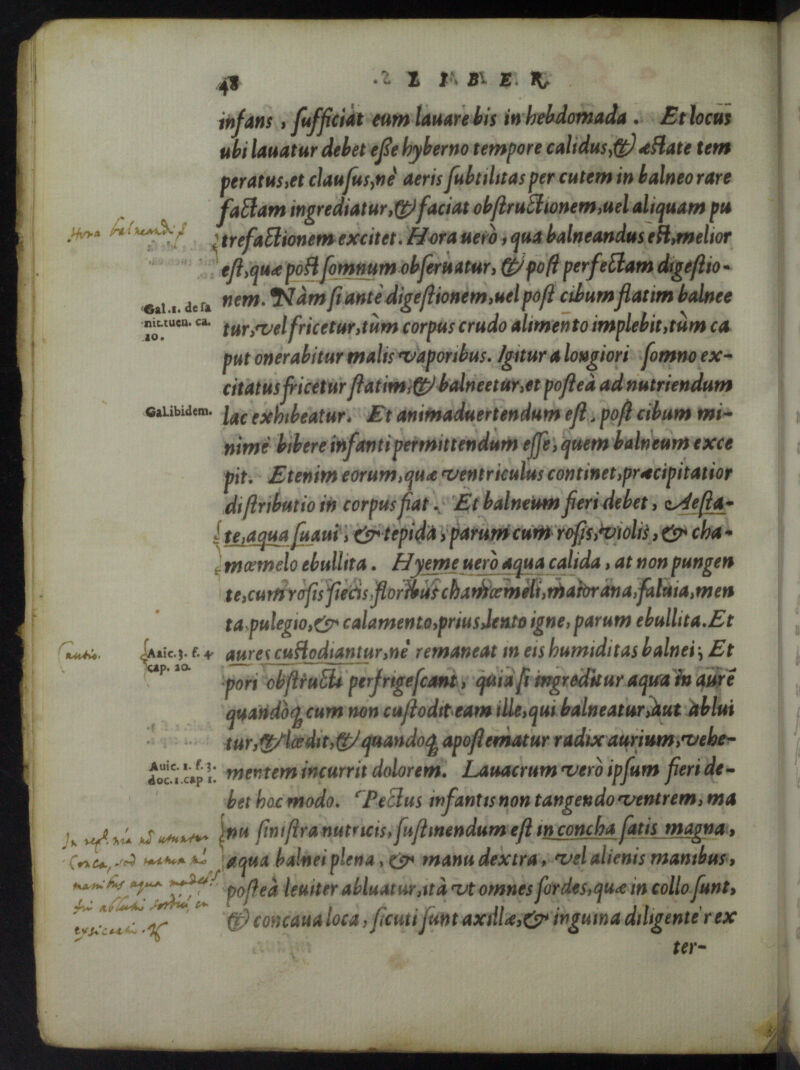 48 L I B E R.
infans, sufficiat eum lauare bis in hebdomada. Et locus
ubi lauatur debet eße hyberno tempore calidus,& æstate tem
peratus,et clausus,nè aeris subtilitas per cutem in balneo rare
factam ingrediatur,& faciat obstructionem,uel aliquam pu
Hora
trefactionem excitet. Hora uerò, qua balneandus est,melior
est,quæ post somnum obseruatur, & post perfectam digestio-
Gal.1. de sa
nit.tuen. ca.
10.
nem. Nàm si antè digestionem,uel post cibum statim balnee
tur,vel fricetur,tùm corpus crudo alimento implebit,tùm ca
put onerabitur malis vaporibus. Igitur a longiori somno ex-
citatus fricetur statim,& balneetur,et posteà ad nutriendum
Gal.ibidem.
lac exhibeatur. Et animaduertendum est, post cibum mi-
nimè bibere infanti permittendum esse, quem balneum exce
pit. Etenim eorum,quæ ventriculus continet,præcipitatior
distributio in corpus fiat. Et balneum fieri debet, Aesta-
te,aqua suaui, & tepida, parum cum rosis,violis, & cha-
mœmelo ebullita. Hyeme uero aqua calida, at non pungen
te,cum rosis siccis,floribus chamœmeli,maiorana,saluia,men
ta,pulegio,& calamento,prius lento igne, parum ebullita.Et
Auic.3. f. 4
cap. 20.
aures custodiantur,nè remaneat in eis humiditas balnei; Et
pori obstructi perfrigescant, quia si ingreditur aqua in aurẽ
quandoq; cum non custodit eam ille,qui balneatur,aut ablui
tur,& lœdit,& quandoq; apostematur radix aurium,vehe-
Auic. 1. f. 3.
doc.1.cap 1.
mentem incurrit dolorem. Lauacrum verò ipsum fieri de-
bet hoc modo. Pectus infantis non tangendo ventrem, ma
nu sinistra nutricis, sustinendum est in concha satis magna,
aqua balnei plena, & manu dextra, vel alienis manibus,
posteà leuiter abluatur,ità vt omnes sordes,quæ in collo sunt,
& concaua loca, sicuti sunt axillæ,& inguina diligenter ex
ter-